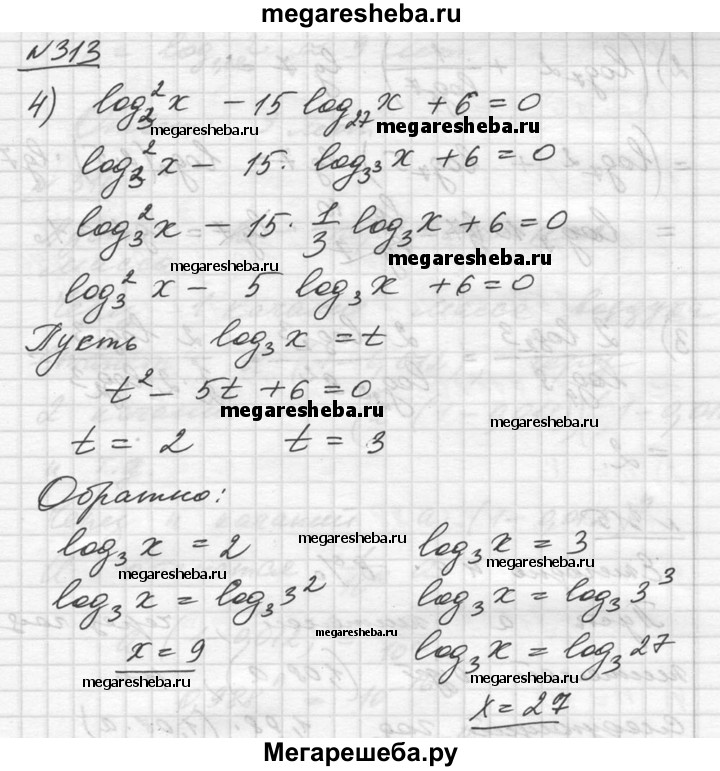 megaresheba.ru
№313
4) log₃²x - 15 log₂₇x + 6 = 0
megaresheba.ru megaresheba.ru
log₃²x - 15 · log₃³x + 6 = 0
log₃²x - 15 · 1/3 log₃x + 6 = 0
megaresheba.ru megaresheba.ru
log₃²x - 5 log₃x + 6 = 0
Пусть log₃x = t
t² - 5t + 6 = 0
megaresheba.ru megaresheba.ru
t = 2 t = 3
Обратно:
megaresheba.ru
log₃x = 2 log₃x = 3
megaresheba.ru megaresheba.ru
log₃x = log₃3² log₃x = log₃3³
megaresheba.ru
x = 9 log₃x = log₃27
megaresheba.ru megaresheba.ru
x = 27
Мегарешеба.ру